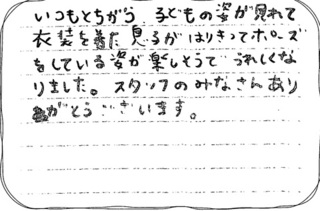 いつもとちがう、子どもの姿が見れて
衣装を着た見るがはりきってポーズ
をしている姿が楽しそうで うれしくな
りました。スタッフのみなさんあり
がとうございます。